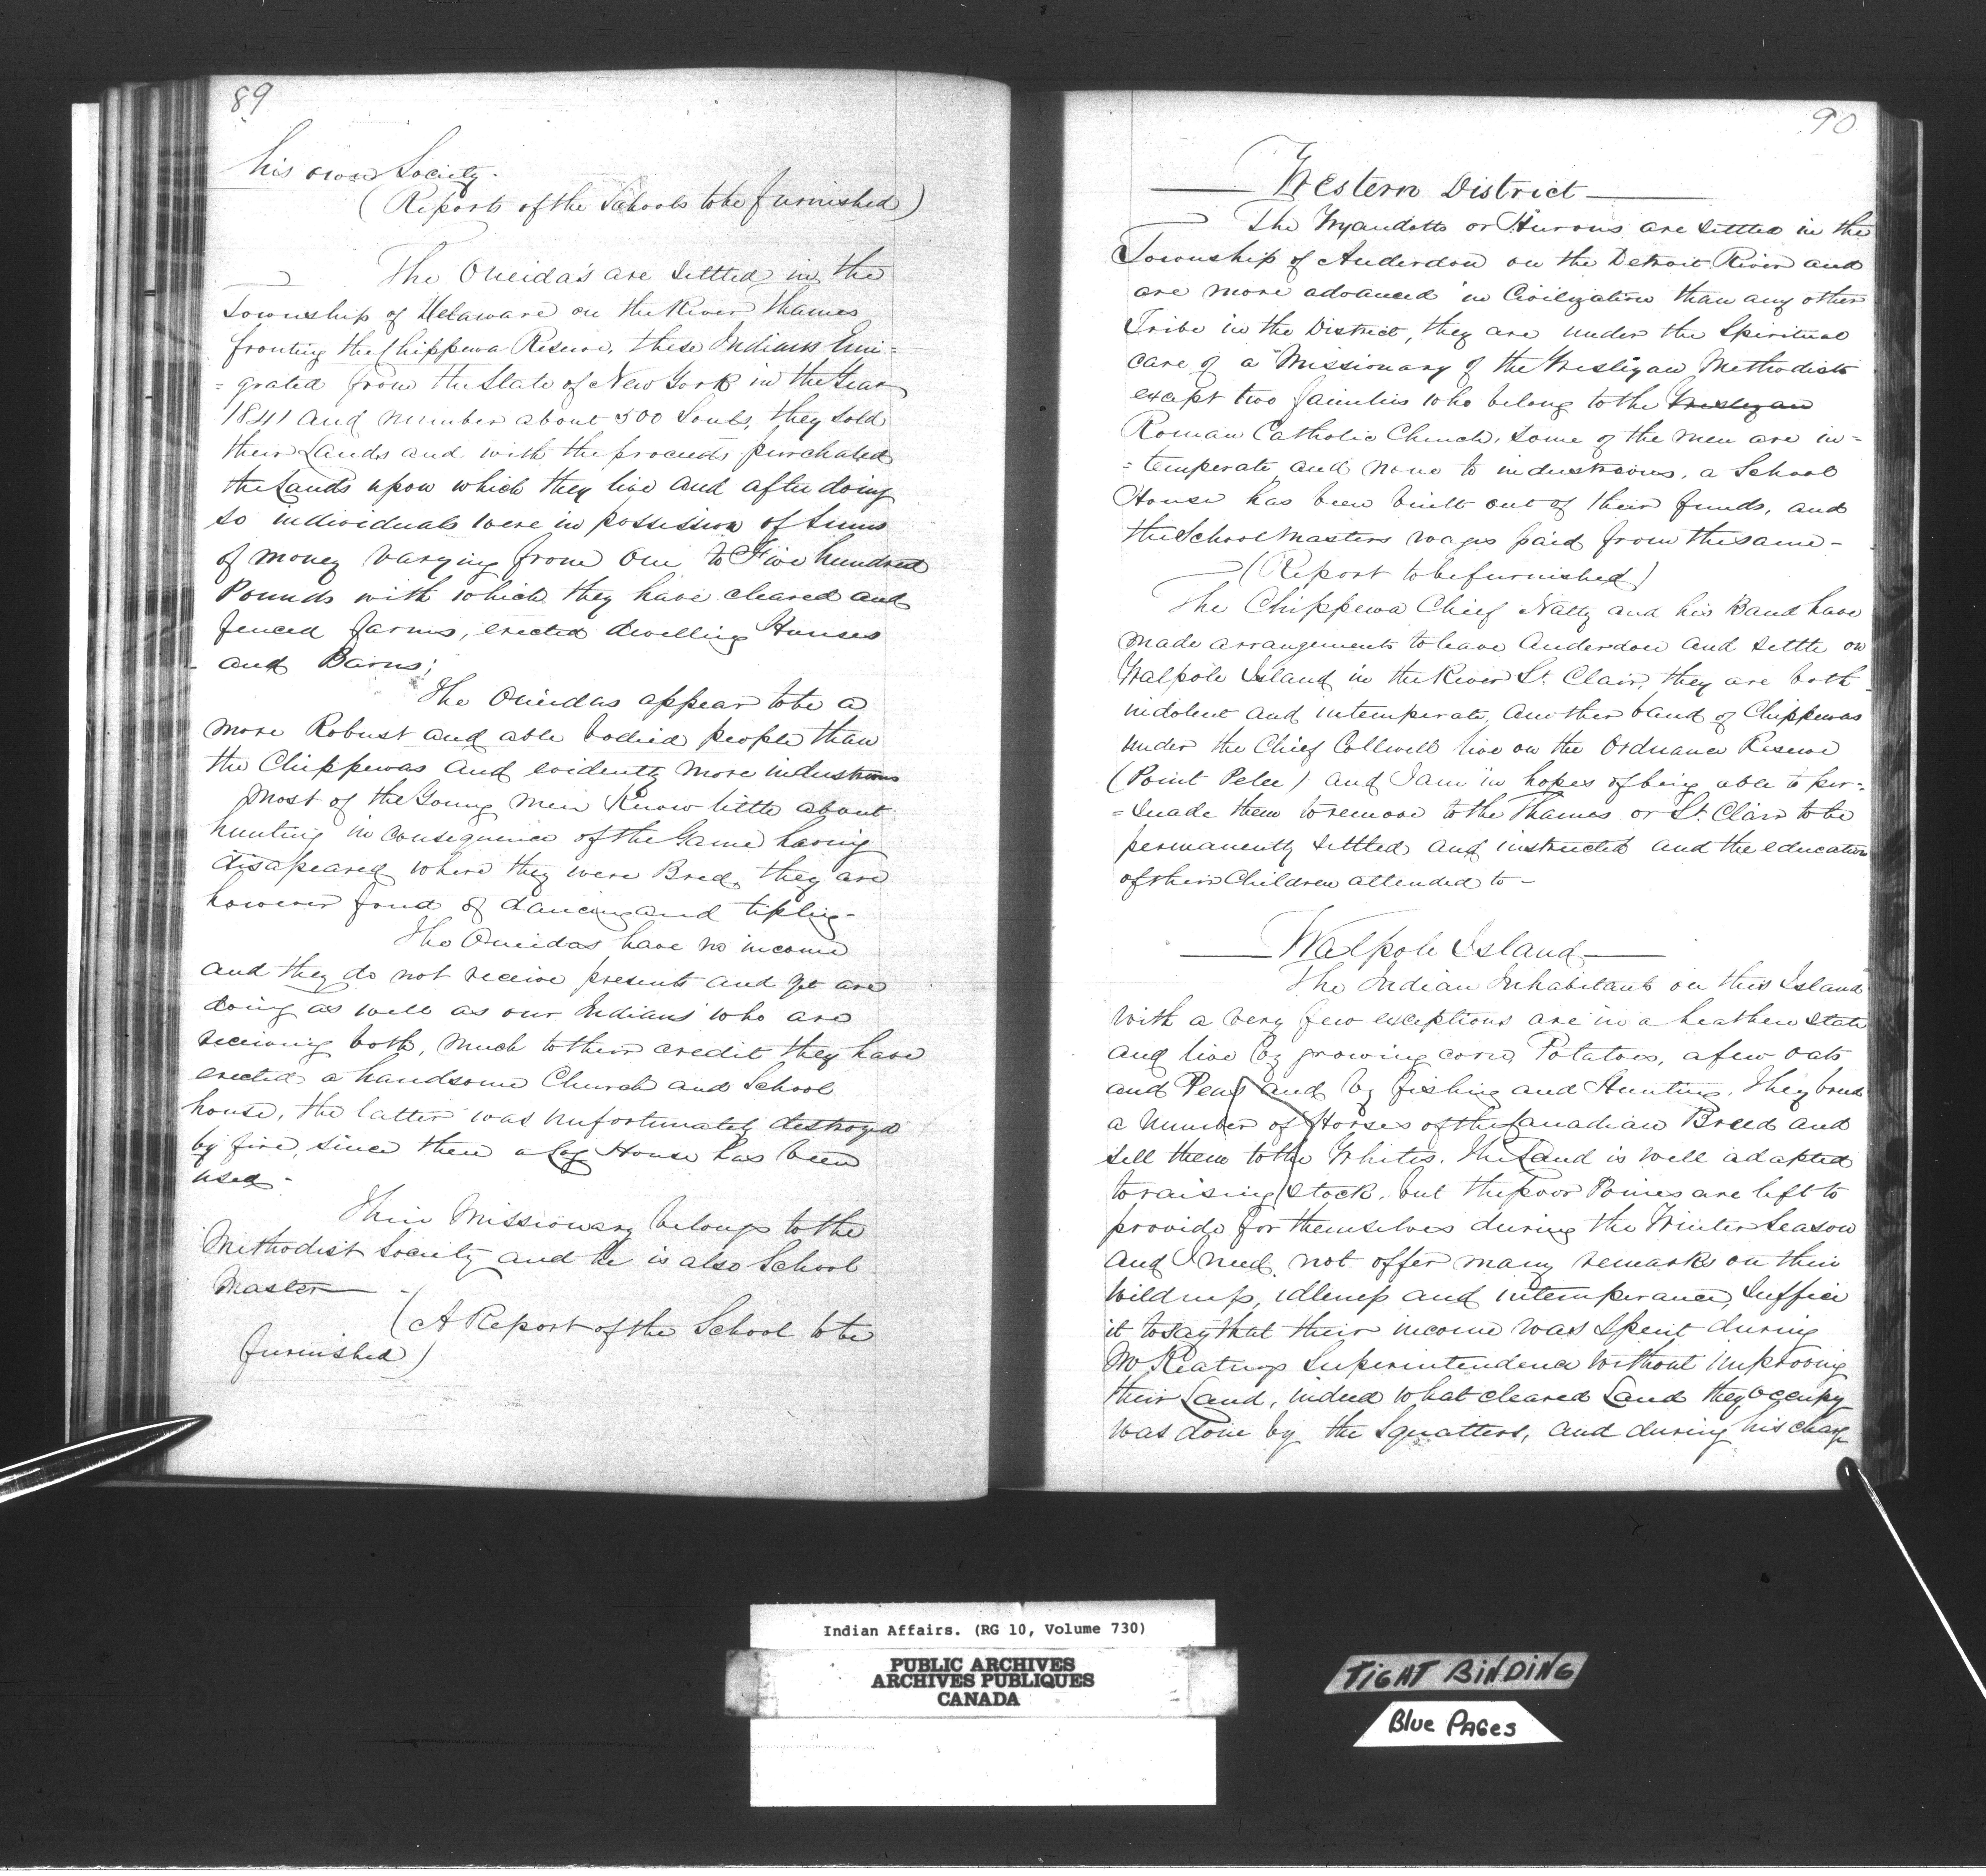 89
his own Society.
(Reports of the Schools to be furnished)
The Oneida's are settled in the
Township of Delaware on the River Thames
fronting the Chippewa Reserve, these Indians Emi=
=grated from the State of New York in the Year
1841 and number about 500 Souls, they sold
their Lands and with the proceeds purchased
the Lands upon which they live and after doing
so individuals were in possession of sums
of money varying from one to Five hundred
Pounds with which they have cleared and
fenced farms, erected dwelling Houses
and Barns;
The Oneidas appear to be a
more Robust and able bodied people than
the Chippewas and evidently more industrious
Most of the Young men Know little about
hunting in consequence of the Game having
disapeared where they were Bred, they are
however fond of dancing and tipling-
The Oneidas have no income
and they do not receive presents and yet are
doing as well as our Indians who are
receiving both, much to their credit they have
erected a handsome Church and School
house, the latter was unfortunately destroyed
by fire, since then a Log House has been
used-
Their Missionary belongs to the
Methodist Society and he is also School
Master-
(A Report of the School to be
furnished)
90
Western District
The Wyandotts or Hurons are settled in the
Township of Anderdon on the Detroit River and
are more advanced in Civilization than any other
Tribe in the District, they are under the Spiritual
care of a Missionary of the Wesleyan Methodists
except two families who belong to the Wesleyan
Roman Catholic Church, some of the men are in=
=temperate, and none to industrious, a School
House has been built out of their funds, and
the School Masters wages paid from the same-
(Report to be furnished)
The Chippewa Chief Nally and his Band have
made arrangements to leave Anderdon and settle on
Walpole Island in the River St. Clair, they are both
indolent and intemperate, another band of Chippewas
under the Chief Collwell live on the Ordnance Reserve
(Point Pelee) and I am in hopes of being able to per=
=suade them to remove to the Thames or St. Clair to be
permanently settled and instructed and the education
of their Children attended to-
Walpole Island
The Indian Inhabitants on this Island
with a very few exceptions are in a heathen state
and live by growing corn, Potatoes, a few oats
and Peas and by fishing and Hunting. They breed
a number of Horses of the Canadian Breed and
sell them to the Whites. The Land is well adapted
to raising stock, but the poor Ponies are left to
provide for themselves during the Winter Season
and I need not offer many remarks on their
wildness, idleness and intemperance, Suffice
it to say that their income was spent during
Mr Keatings Superintendence without improving
their Land, indeed what cleared Land they occupy
was done by the Squatters, and during his charge
Indian Affairs. (RG 10, Volume 730)
PUBLIC ARCHIVES
ARCHIVES PUBLIQUES
CANADA
TIGHT BINDING
Blue PAGes